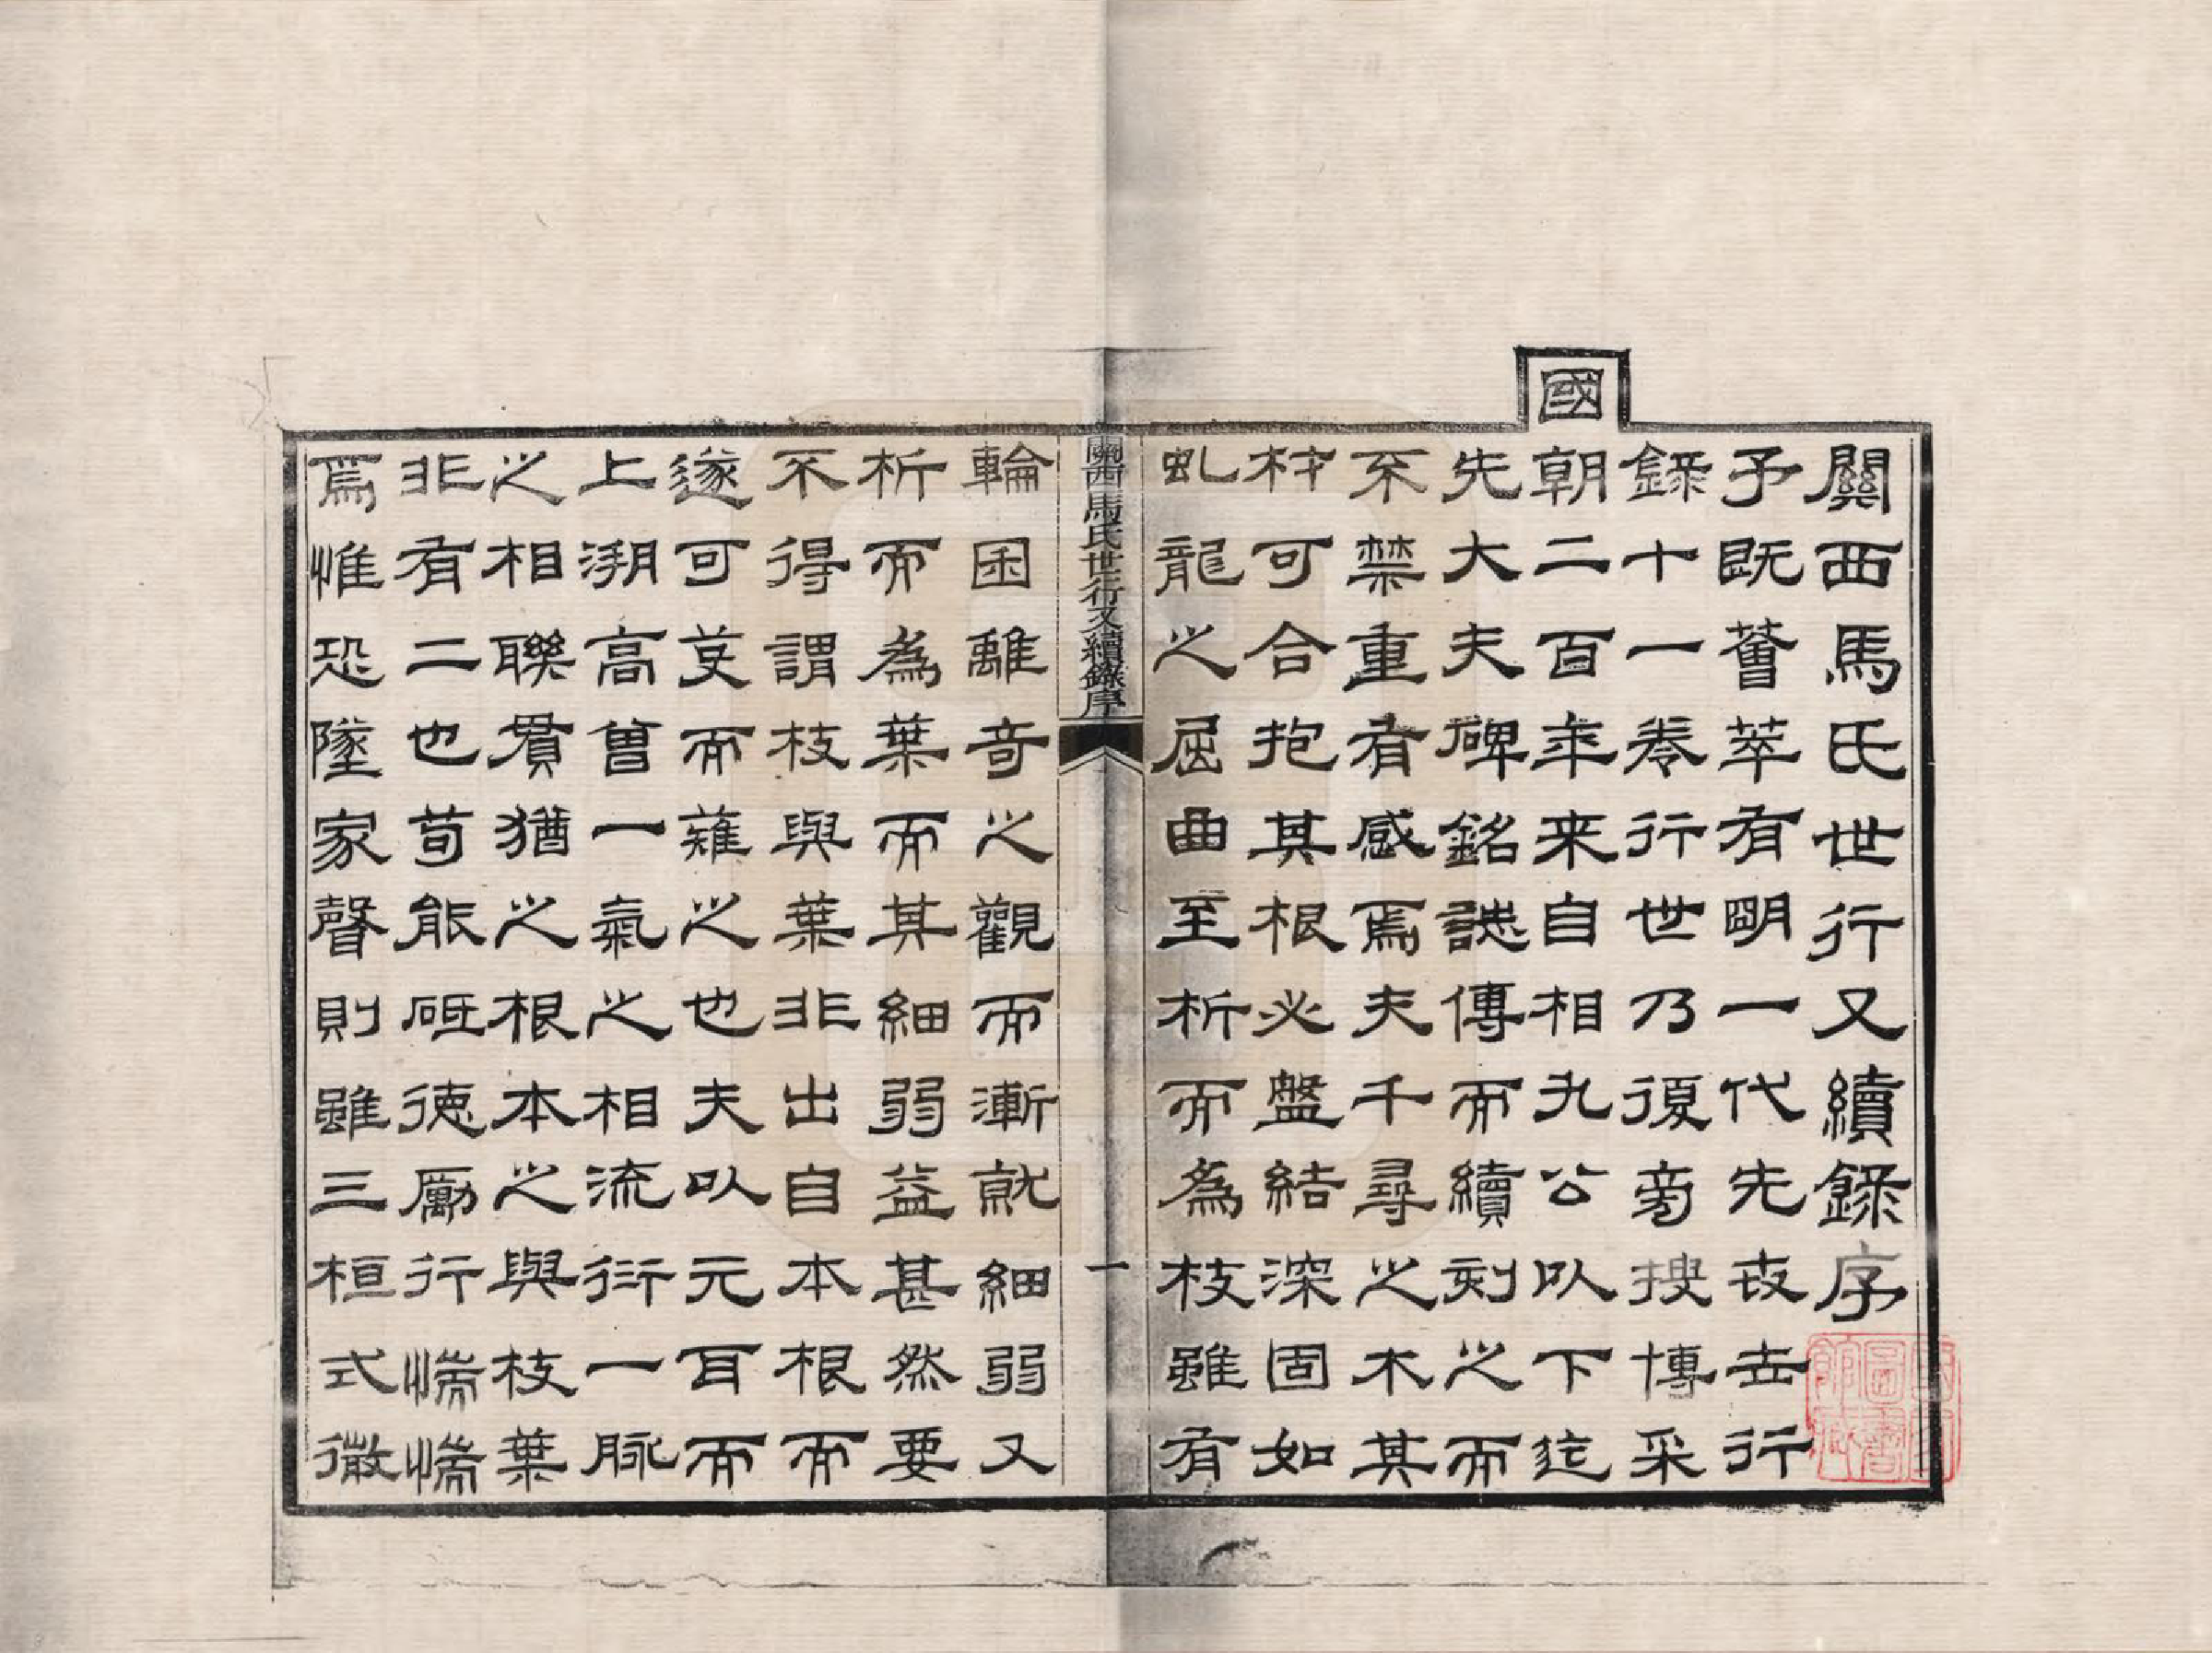 關西馬氏世行又續錄序
予既蒼萃有明一代先世行
錄十一卷行世乃復旁搜博采
國
朝二百年來自相九公以下迄
先大夫碑銘誌傳而續刻之而
不禁重有感焉夫千尋之木其
材可合抱其根必盤結深固如
虬龍之屈曲至析而為枝雖有
關西馬氏世行又續錄序
一
輪囷離奇之觀而漸就細弱又
析而為葉而其細弱益甚然要
不得謂枝與葉非出自本根而
遂可芟而薙之也夫以元耳而
上溯高曾一氣之相流衍一脉
之相聯貫猶之根本之與枝葉
非有二也苟能砥德勵行惴惴
焉惟恐墜家聲則雖三桓式微